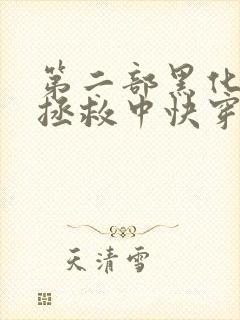 第二部黑化
拯救中快穿
天清雪